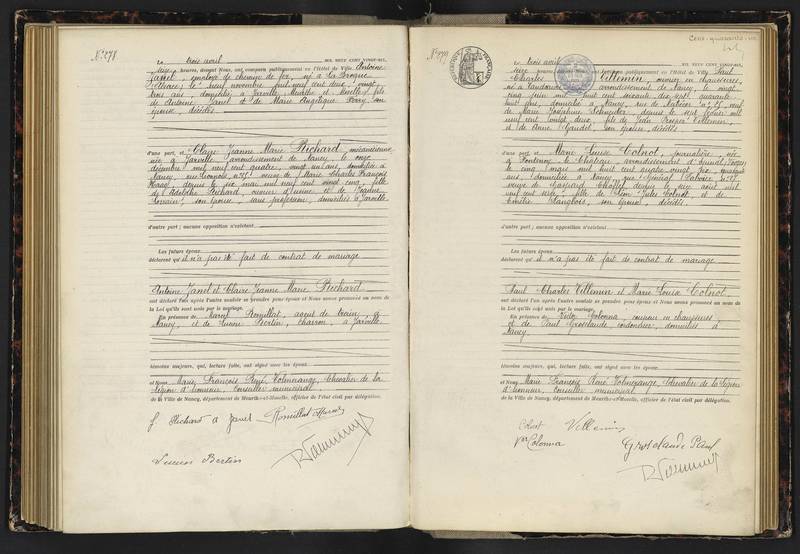 N° 278
Le trois avril MIL NEUF CENT VINGT-SIX,
seize heures, devant Nous, ont comparu publiquement en l'Hôtel de Ville Antoine
Janel, employé de chemin de fer, né à La Broque
(Alsace) le neuf novembre mil neuf cent deux, vingt
trois ans, domicilié à Jarville Meurthe et Moselle, fils
de Antoine Janel et de Marie Angélique son
épouse, décédés
d'une part, et Claire Jeanne Marie Richard, mécanicienne
née à Jarville arrondissement de Nancy, le onze
décembre mil neuf cent quatre, vingt un ans, domiciliée à
Nancy, rue veuve de Marie Charles François
depuis le six mai mil neuf cent vingt cinq, fille
de Richard, ouvrier d'usine et de
son épouse, sans profession, domiciliés à Jarville
d'autre part; aucune opposition n'existant
Les futurs époux
déclarent qu'il n'a pas été fait de contrat de mariage
Antoine Janel et Claire Jeanne Marie Richard
ont déclaré l'un après l'autre vouloir se prendre pour époux et Nous avons prononcé au nom de
la Loi qu'ils sont unis par le mariage.
En présence de Marcel Romillat, agent de train à
Nancy, et de Lucien Bertin, charron, à Jarville
témoins majeurs, qui, lecture faite, ont signé avec les époux
et Nous Marie François René Volmerange, Chevalier de la
Légion d'honneur, Conseiller municipal
de la Ville de Nancy, département de Meurthe-et-Moselle, officier de l'état civil par délégation.
J. Richard A Janel Romillat Marcel
Lucien Bertin
N° 279
Le trois avril MIL NEUF CENT VINGT-SIX,
seize heures, devant Nous, ont comparu publiquement en l'Hôtel de Ville Paul
Charles Villemin, coupeur en chaussures,
né à Vandœuvre arrondissement de Nancy, le vingt
cinq juin mil huit cent soixante dix sept, quarante
huit ans, domicilié à Nancy, rue de n° 25, veuf
de Marie Joséphine Schneider, depuis le sept février mil
neuf cent vingt deux, fils de Jean Prosper Villemin,
et de Anne Gaudel, son épouse, décédés
d'une part; et Marie Louise Colnot, journalière, née
à Fontenoy le Château arrondissement d'Epinal (Vosges)
le cinq mai mil huit cent quatre vingt six, quarante
ans, domiciliée à Nancy, rue Général
veuve de Gaspard depuis le six août mil
neuf cent seize, fille de Jules Colnot, et de
Langlois, son épouse, décédés
d'autre part; aucune opposition n'existant
Les futurs époux
déclarent qu'il n'a pas été fait de contrat de mariage
Paul Charles Villemin et Marie Louise Colnot
ont déclaré l'un après l'autre vouloir se prendre pour époux et Nous avons prononcé au nom de
la Loi qu'ils sont unis par le mariage.
En présence de Victor Colonna, coupeur en chaussures
et de Paul Grosclaude, cordonnier, domiciliés à
Nancy
témoins majeurs, qui, lecture faite, ont signé avec les époux
et Nous Marie François René Volmerange, Chevalier de la Légion
d'honneur, Conseiller municipal
de la Ville de Nancy, département de Meurthe-et-Moselle, officier de l'état civil par délégation.
Colnot Villemin
Vor Colonna
Grosclaude Paul